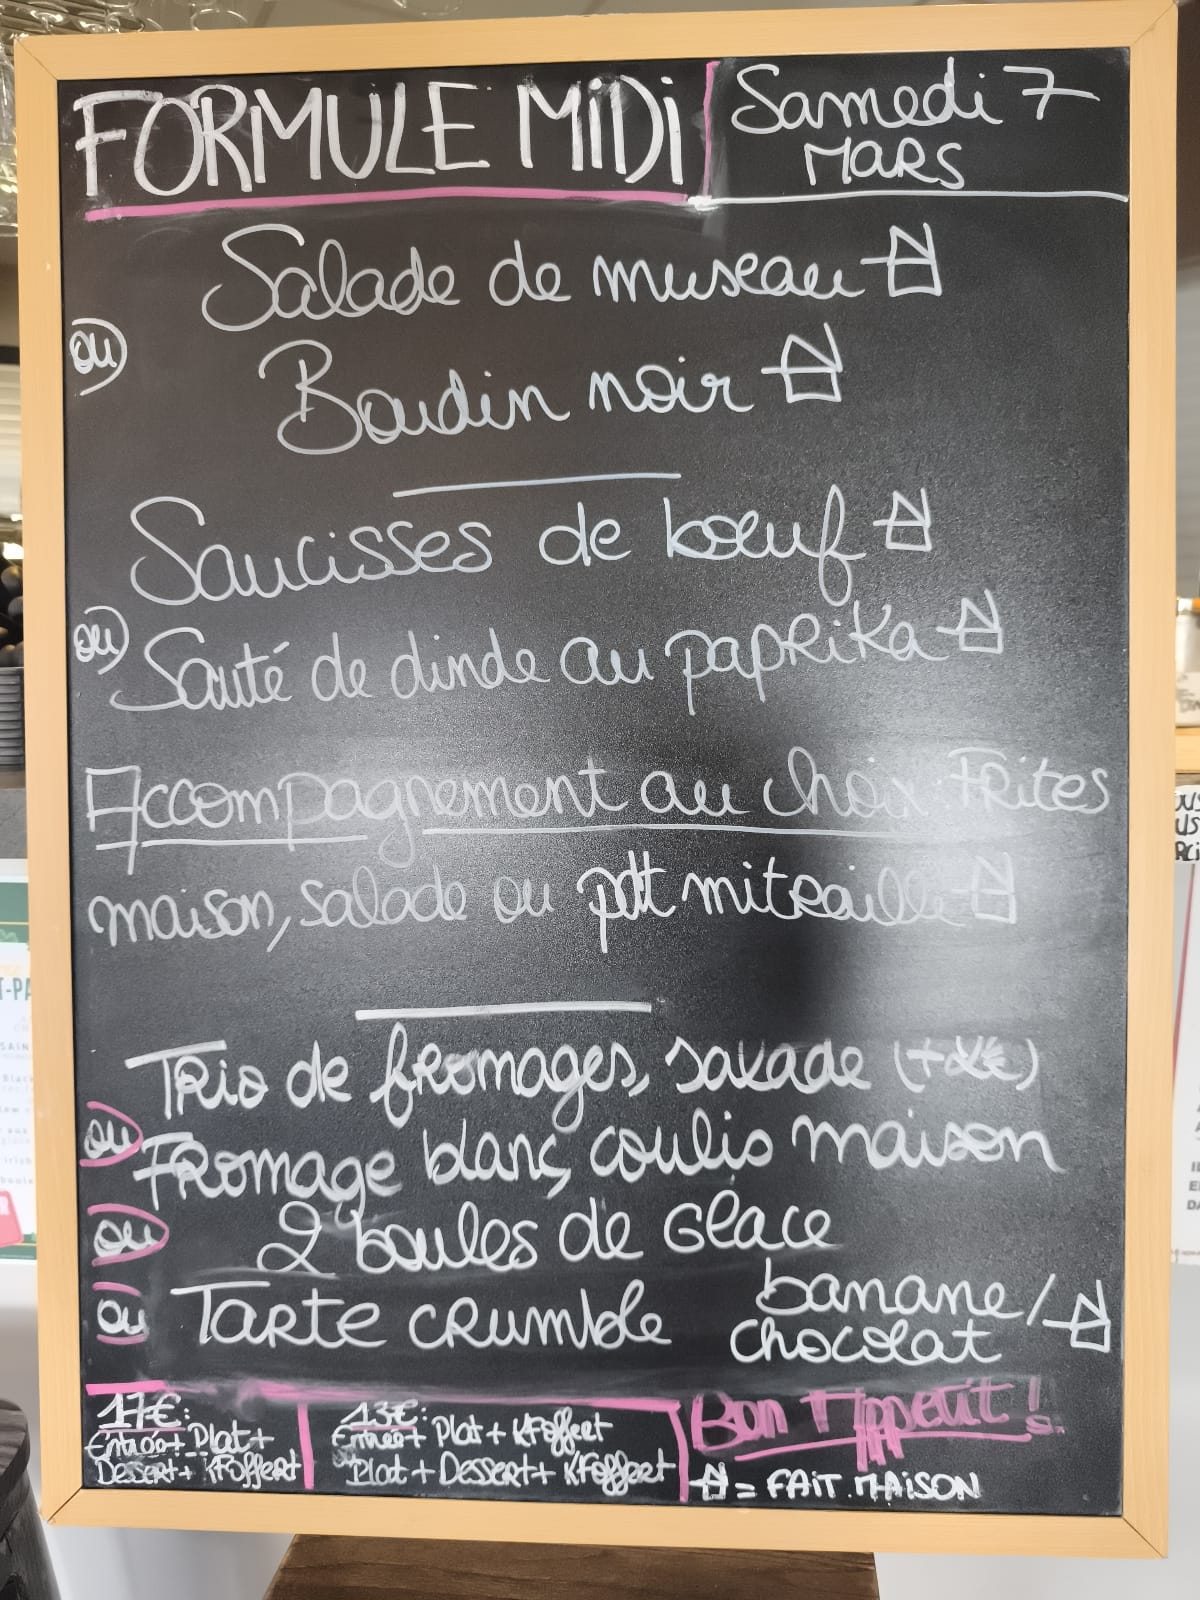 FORMULE MiDi
Samedi 7
MARS
Salade de museau
ou
Boudin noir
Saucisses de bœuf
ou
Sauté de dinde au paprika
Accompagnement au choix FRites
maison, salade ou pdt mitraille
Trio de fromages, salade (+2€)
ou
Fromage blanc, coulis maison
ou
2 boules de Glace
ou
Tarte crumble banane/
chocolat
17€:
Entrée+ Plat+
Dessert+ Kfoffert
13€:
Entrée+ Plat + Kfoffert
ou
Plat + Dessert + Kfoffert
Bon Appétit !
= FAiT MAiSON